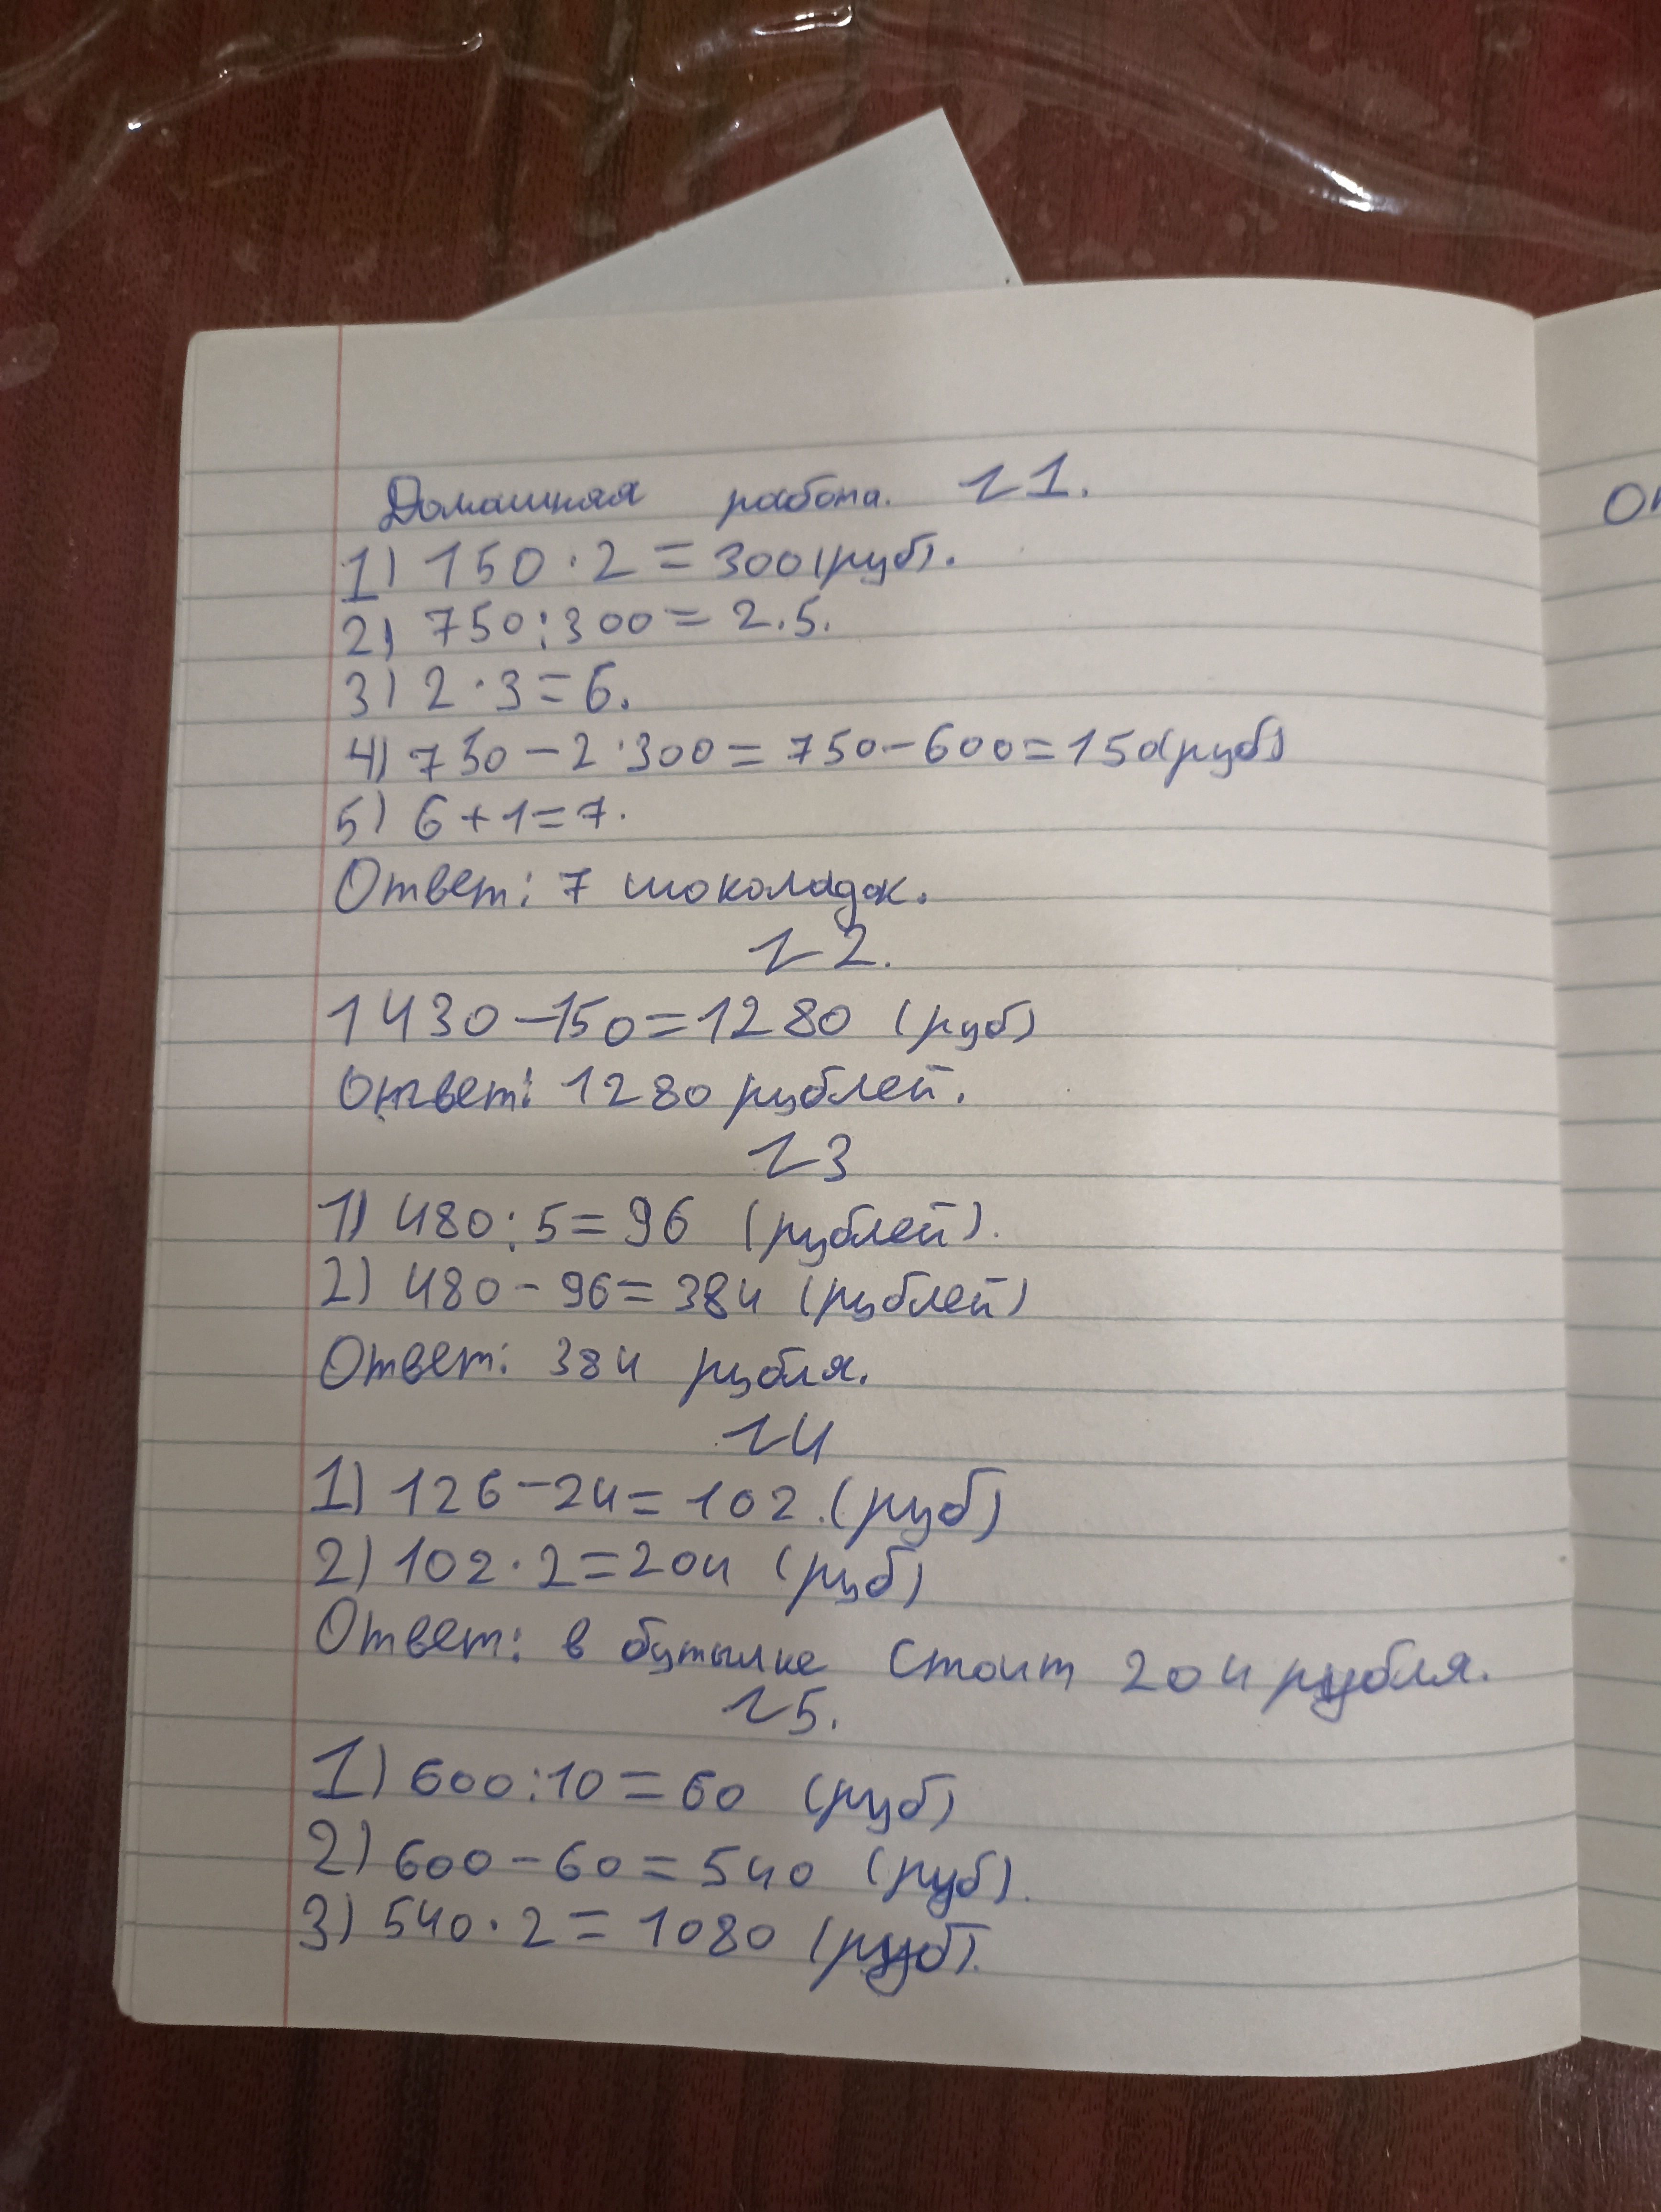 Домашняя работа. №1.
1) 150 · 2 = 300 (руб).
2) 750 : 300 = 2.5.
3) 2 · 3 = 6.
4) 750 - 2 · 300 = 750 - 600 = 150 (руб)
5) 6 + 1 = 7.
Ответ: 7 шоколадок.
№2.
1430 - 150 = 1280 (руб)
Ответ: 1280 рублей.
№3
1) 480 : 5 = 96 (рублей).
2) 480 - 96 = 384 (рублей)
Ответ: 384 рубля.
№4
1) 126 - 24 = 102. (руб)
2) 102 · 2 = 204 (руб)
Ответ: в бутылке стоит 204 рубля.
№5.
1) 600 : 10 = 60 (руб)
2) 600 - 60 = 540 (руб).
3) 540 · 2 = 1080 (руб).